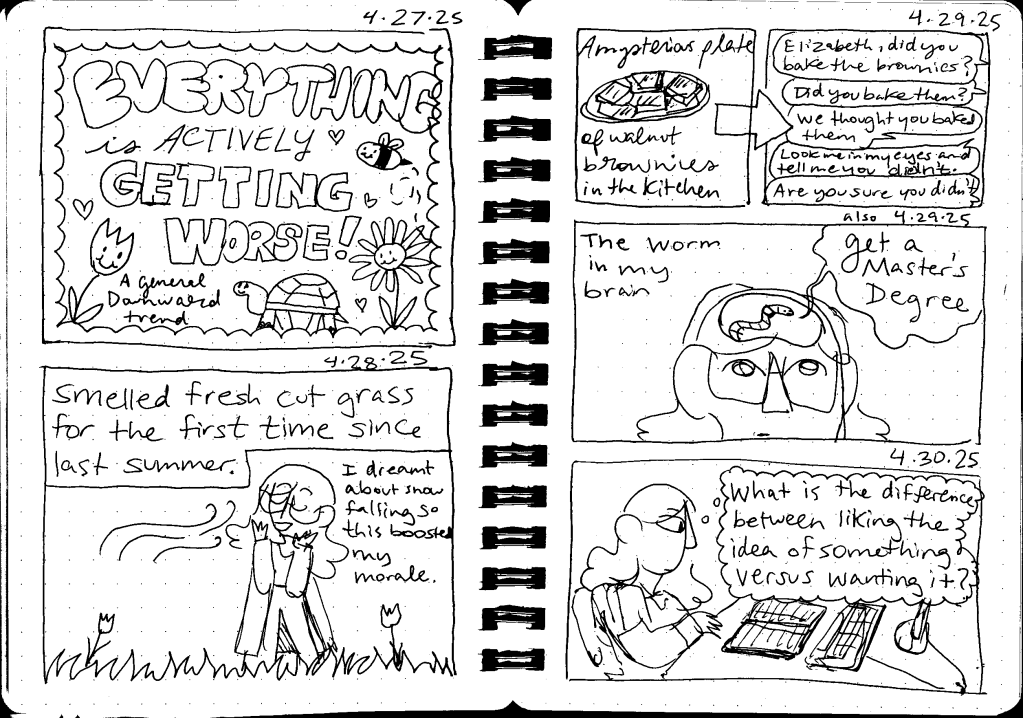 4.27.25
EVERYTHING
is ACTIVELY
GETTING
WORSE!
A general
Downward
trend
4.28.25
Smelled fresh cut grass
for the first time since
last summer.
I dreamt
about snow
falling so
this boosted
my
morale.
4.29.25
A mysterious plate
of walnut
brownies
in the kitchen
Elizabeth, did you
bake the brownies?
Did you bake them?
we thought you baked
them
Look me in my eyes and
tell me you didn't.
Are you sure you didn't?
also 4.29.25
The worm
in my
brain
get a
Master's
Degree
4.30.25
What is the difference
between liking the
idea of something
versus wanting it?